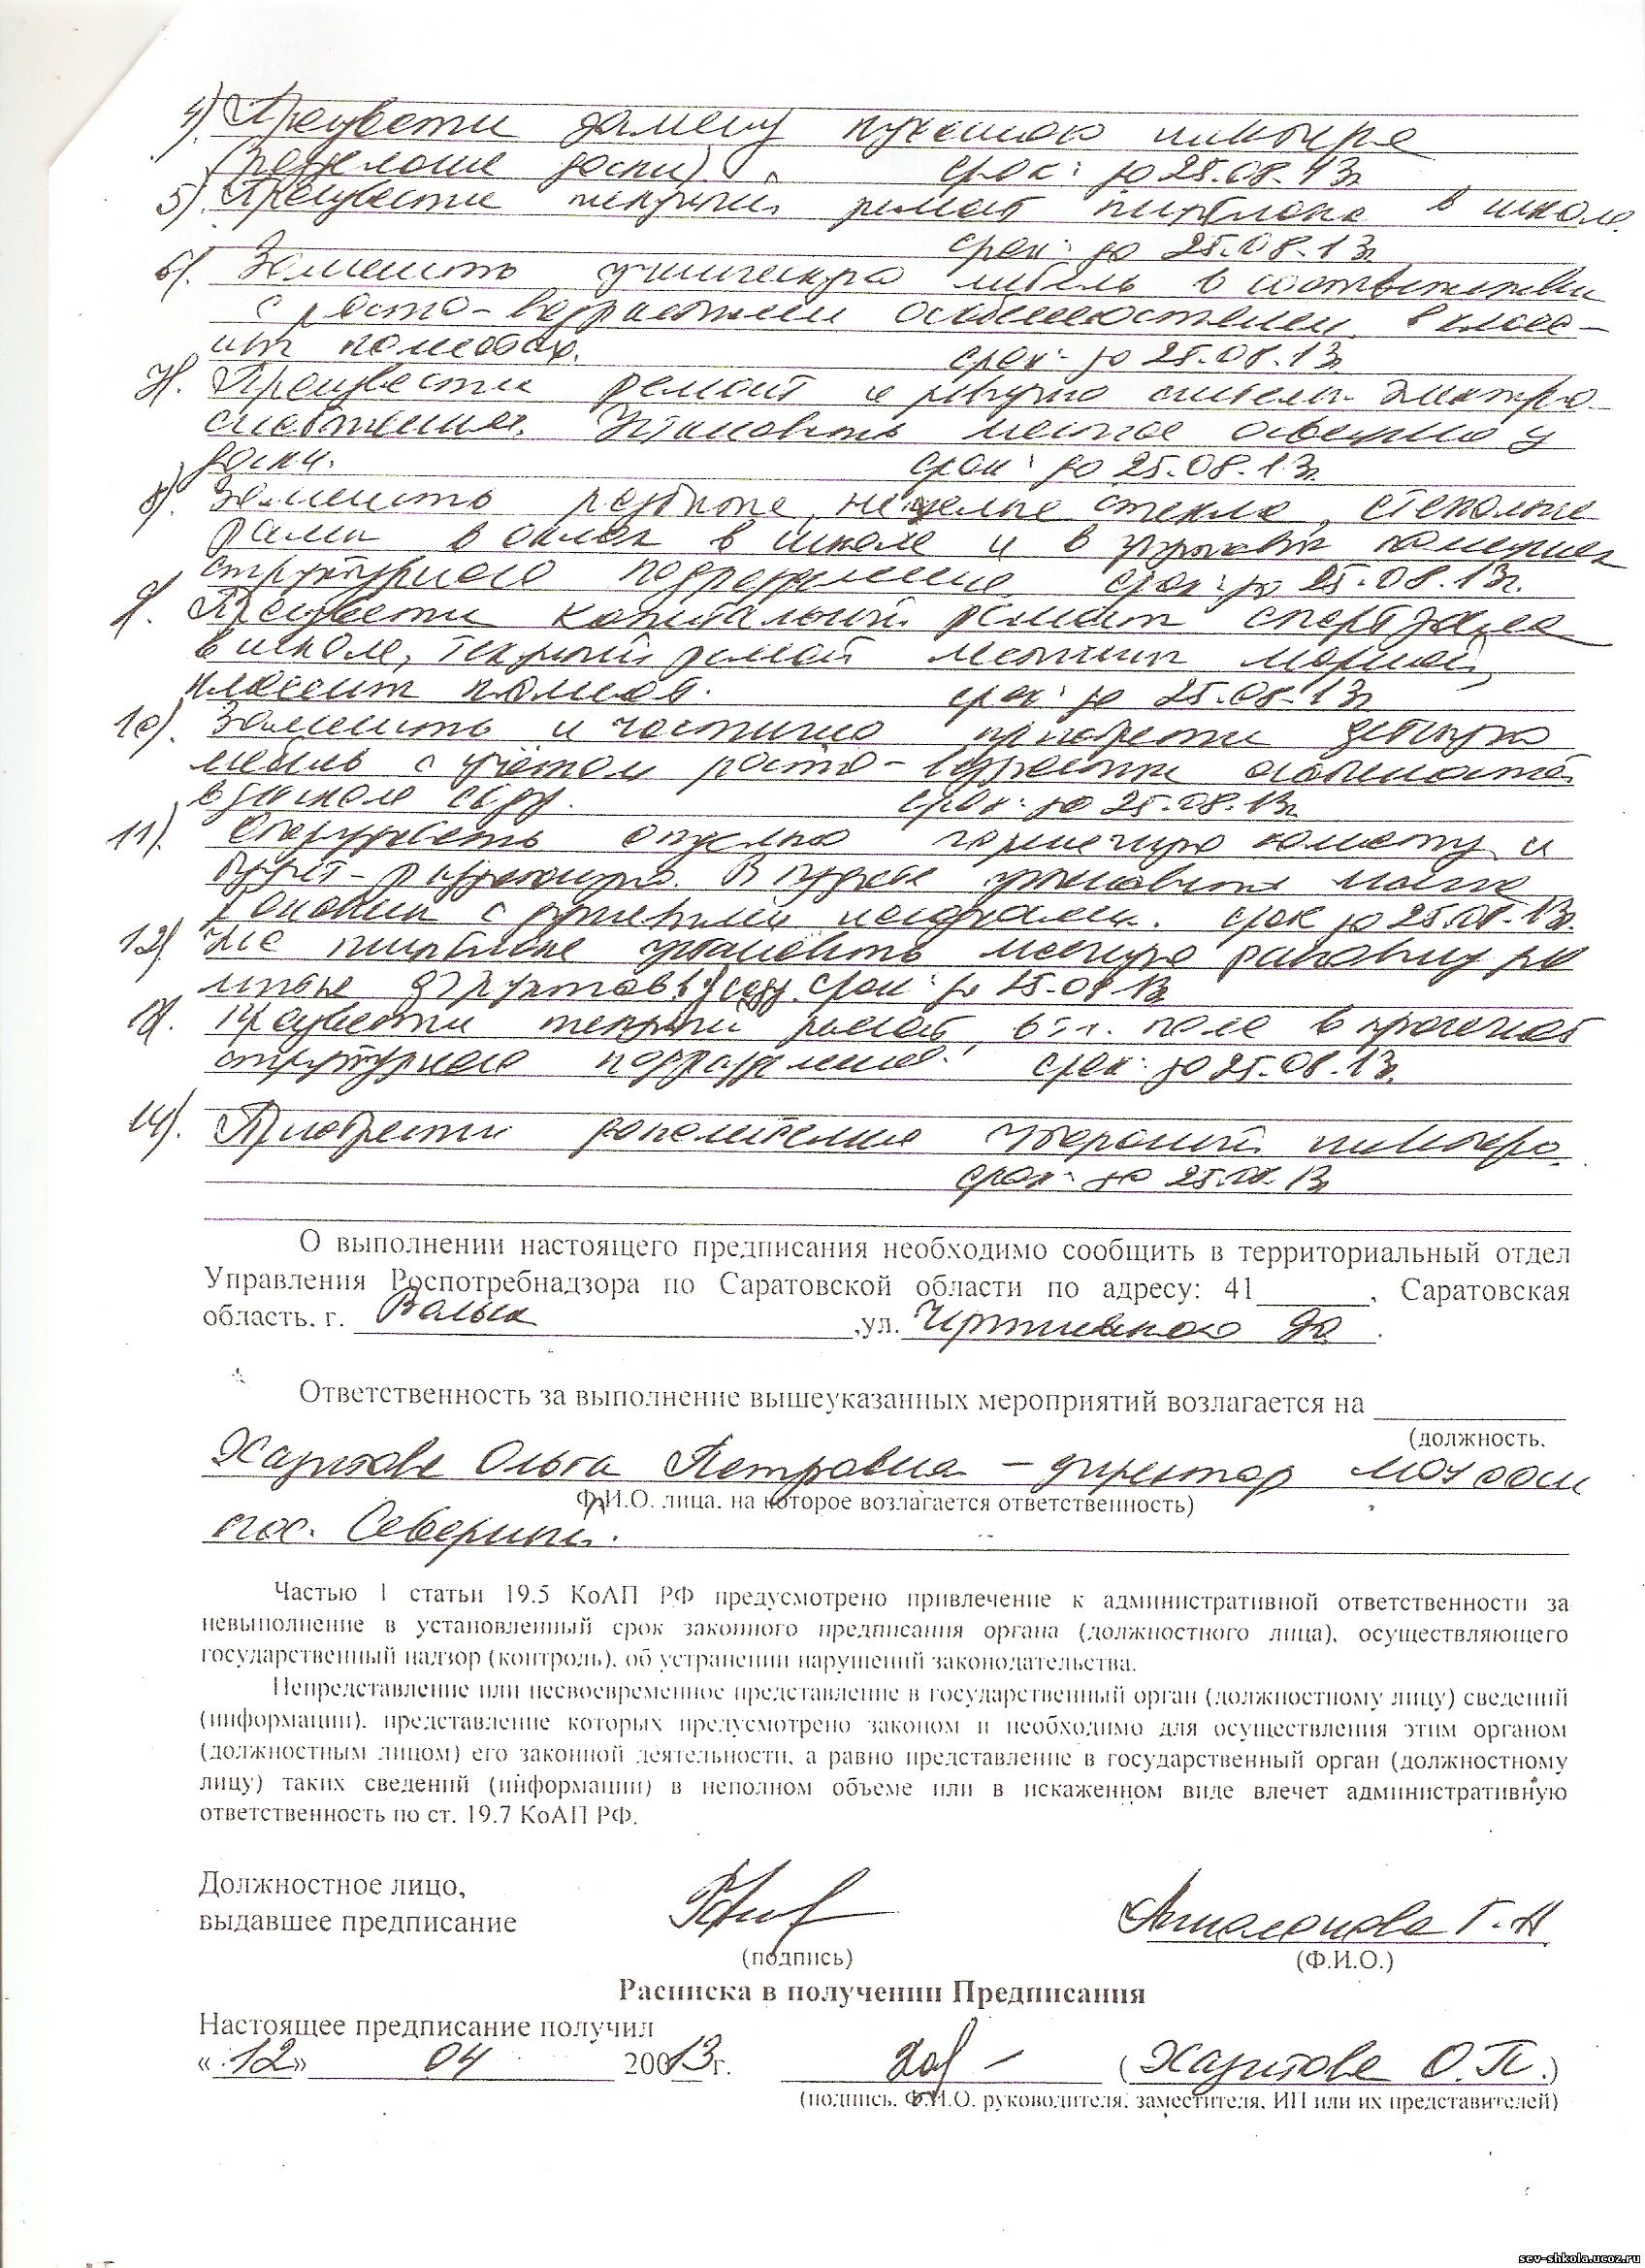 4). Произвести замену кухонного инвентаря
(разделочные доски). срок: до 25.08.13г.
5). Произвести текущий ремонт пищеблока в школе.
срок: до 25.08.13г.
6). Заменить ученическую мебель в соответствии
с росто-возрастными особенностями в класс-
ных помещ. срок: до 25.08.13г
7). Произвести ремонт и системы электро-
снабжения. Установить местное освещение у
доски. срок: до 25.08.13г.
8). Заменить разбитые, нецелые стекла, стекольные
рамы в окнах в школе и в помещениях
структурного подразделения. срок: до 25.08.13г.
9). Произвести капитальный ремонт спортзала
в школе, текущий ремонт лестничн. маршей,
классных помещ. срок: до 25.08.13г
10). Заменить и частично приобрести детскую
мебель с учётом росто-возрастных особенностей
в саду. срок: до 25.08.13г.
11). Оборудовать отдельно горшечную комнату и
раковины с душевыми срок до 25.08.13г.
12) На пищеблоке установить моечную раковину для
мытья в д/саду. срок: до 25.08.13г
13). Произвести текущий ремонт, в т.ч. пола в прачечной
структурного подразделения. срок: до 25.08.13г.
14). Приобрести дополнительно уборочный инвентарь.
срок: до 25.08.13г
О выполнении настоящего предписания необходимо сообщить в территориальный отдел
Управления Роспотребнадзора по Саратовской области по адресу: 41________, Саратовская
область, г. Вольск ,ул. 20.
Ответственность за выполнение вышеуказанных мероприятий возлагается на
(должность,
Харитова Ольга Петровна – директор МОУ СОШ
Ф.И.О. лица, на которое возлагается ответственность)
пос. Северный.
Частью 1 статьи 19.5 КоАП РФ предусмотрено привлечение к административной ответственности за
невыполнение в установленный срок законного предписания органа (должностного лица), осуществляющего
государственный надзор (контроль), об устранении нарушений законодательства.
Непредставление или несвоевременное представление в государственный орган (должностному лицу) сведений
(информации), представление которых предусмотрено законом и необходимо для осуществления этим органом
(должностным лицом) его законной деятельности, а равно представление в государственный орган (должностному
лицу) таких сведений (информации) в неполном объеме или в искаженном виде влечет административную
ответственность по ст. 19.7 КоАП РФ.
Должностное лицо,
выдавшее предписание Г.Н
(подпись) (Ф.И.О.)
Расписка в получении Предписания
Настоящее предписание получил
«12» 04 20013г. (Харитова О.П.)
(подпись, Ф.И.О. руководителя, заместителя, ИП или их представителей)
sev-shkola.ucoz.ru